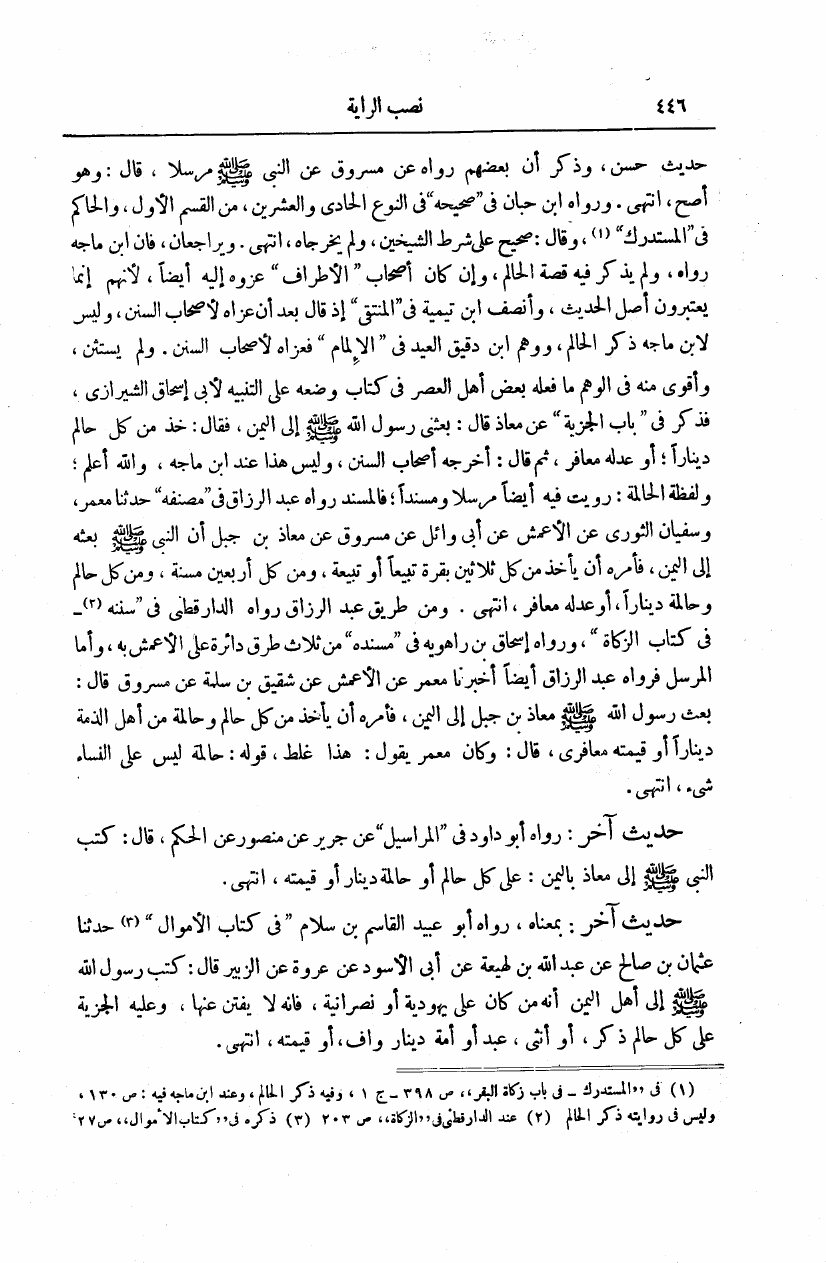 ٤٤٦ نصب الراية
حديث حسن، وذكر أن بعضهم رواه عن مسروق عن النبي ﷺ مرسلا، قال: وهو
أصح، انتهى. ورواه ابن حبان فى "صحيحه" فى النوع الحادى والعشرين، من القسم الأول، والحاكم
فى "المستدرك" (١)، وقال: صحيح على شرط الشيخين، ولم يخرجاه، انتهى. ويراجعان، فان ابن ماجه
رواه، ولم يذكر فيه قصة الحالم، وإن كان أصحاب "الأطراف" عزوه إليه أيضاً، لأنهم إنما
يعتبرون أصل الحديث، وأنصف ابن تيمية فى "المنتقى" إذ قال بعد أن عزاه لأصحاب السنن، وليس
لابن ماجه ذكر الحالم، ووهم ابن دقيق العيد فى "الإلمام" فعزاه لأصحاب السنن. ولم يستثن،
وأقوى منه فى الوهم ما فعله بعض أهل العصر فى كتاب وضعه على التنبيه لأبى إسحاق الشيرازى،
فذكر فى "باب الجزية" عن معاذ قال: بعثنى رسول الله ﷺ إلى اليمن، فقال: خذ من كل حالم
ديناراً؛ أو عدله معافر، ثم قال: أخرجه أصحاب السنن، وليس هذا عند ابن ماجه، والله أعلم؛
ولفظة الحالمة: رويت فيه أيضاً مرسلا ومسنداً؛ فالمسند رواه عبد الرزاق فى "مصنفه" حدثنا معمر،
وسفيان الثورى عن الأعمش عن أبى وائل عن مسروق عن معاذ بن جبل أن النبى ﷺ بعثه
إلى اليمن، فأمره أن يأخذ من كل ثلاثين بقرة تبيعاً أو تبيعة، ومن كل أربعين مسنة، ومن كل حالم
وحالمة ديناراً، أو عدله معافر، انتهى. ومن طريق عبد الرزاق رواه الدارقطنى فى "سننه (٢) ـ
فى كتاب الزكاة"، ورواه إسحاق بن راهويه فى "مسنده" من ثلاث طرق دائرة على الأعمش به، وأما
المرسل فرواه عبد الرزاق أيضاً أخبرنا معمر عن الأعمش عن شقيق بن سلمة عن مسروق قال:
بعث رسول الله ﷺ معاذ بن جبل إلى اليمن، فأمره أن يأخذ من كل حالم وحالمة من أهل الذمة
ديناراً أو قيمته معافرى، قال: وكان معمر يقول: هذا غلط، قوله: حالمة ليس على النساء
شىء، انتهى.
حديث آخر: رواه أبو داود فى "المراسيل" عن جرير عن منصور عن الحكم، قال: كتب
النبى ﷺ إلى معاذ باليمن: على كل حالم أو حالمة دينار أو قيمته، انتهى.
حديث آخر: بمعناه، رواه أبو عبيد القاسم بن سلام "فى كتاب الأموال" (٣) حدثنا
عثمان بن صالح عن عبد الله بن لهيعة عن أبى الأسود عن عروة عن الزبير قال: كتب رسول الله
ﷺ إلى أهل اليمن أنه من كان على يهودية أو نصرانية، فانه لا يفتن عنها، وعليه الجزية
على كل حالم ذكر، أو أنثى، عبد أو أمة دينار واف، أو قيمته، انتهى.
(١) فى ,,المستدرك ـ فى باب زكاة البقر،، ص ٣٩٨ ـ ج ١، وفيه ذكر الحالم، وعند ابن ماجه فيه: ص ١٣٠،
وليس فى روايته ذكر الحالم (٢) عند الدارقطنى فى ,,الزكاة،، ص ٢٠٣ (٣) ذكره فى ,,كتاب الأموال،، ص ٢٧